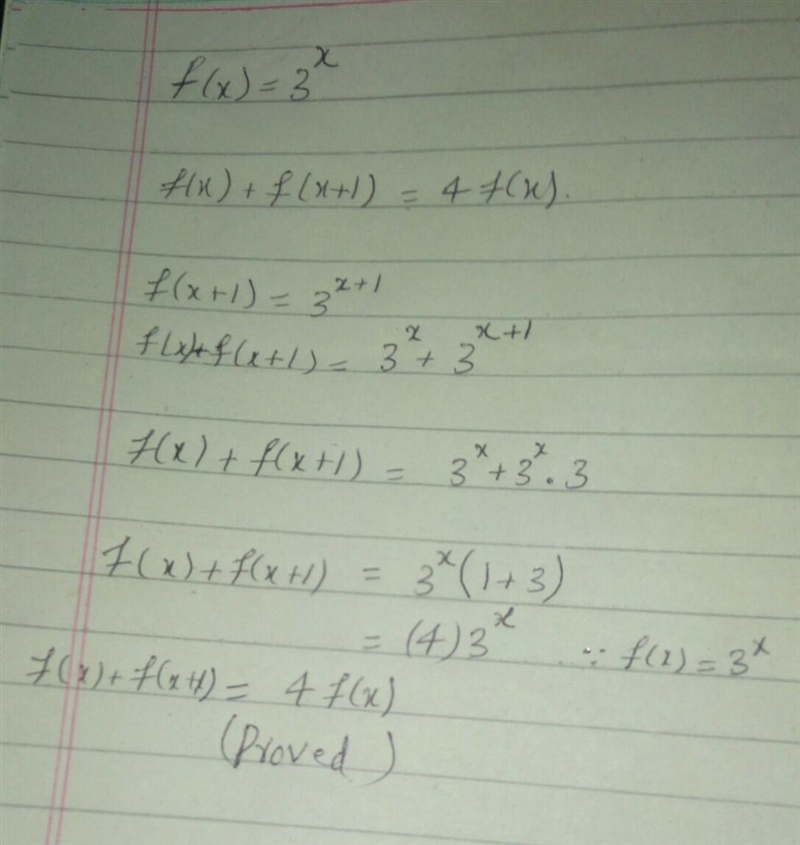 f(x) = 3^x
f(x) + f(x+1) = 4 f(x).
f(x+1) = 3^{x+1}
f(x)+f(x+1) = 3^x + 3^{x+1}
f(x) + f(x+1) = 3^x + 3^x . 3
f(x) + f(x+1) = 3^x (1+3)
= (4) 3^x ∵ f(x) = 3^x
f(x) + f(x+1) = 4 f(x)
(Proved)